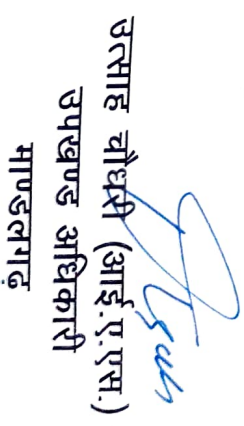 उत्साह चौधरी (आई.ए.एस.)
उपखण्ड अधिकारी
माण्डलगढ़